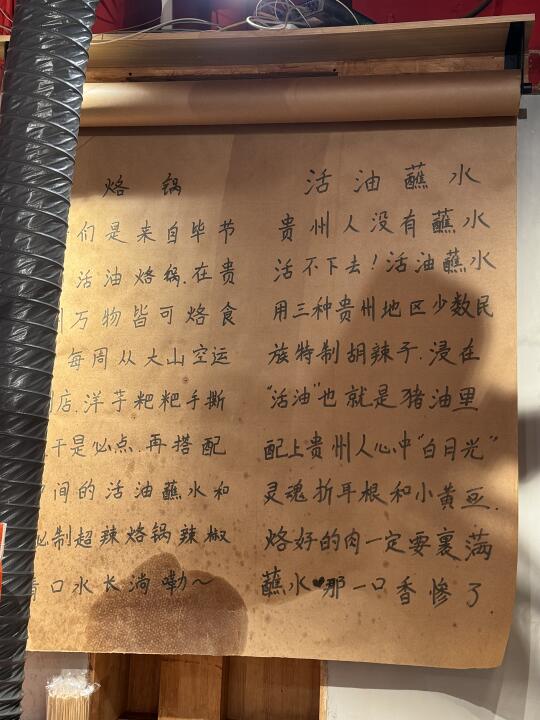 烙锅
们是来自毕节
活油烙锅.在贵
万物皆可烙食
每周从大山空运
店.洋芋粑粑手撕
干是必点.再搭配
间的活油蘸水和
制超辣烙锅辣椒
口水长淌嘞～
活油蘸水
贵州人没有蘸水
活不下去!活油蘸水
用三种贵州地区少数民
族特制胡辣子.浸在
"活油"也就是猪油里
配上贵州人心中"白月光"
灵魂折耳根和小黄豆.
烙好的肉一定要裹满
蘸水♥那一口香惨了